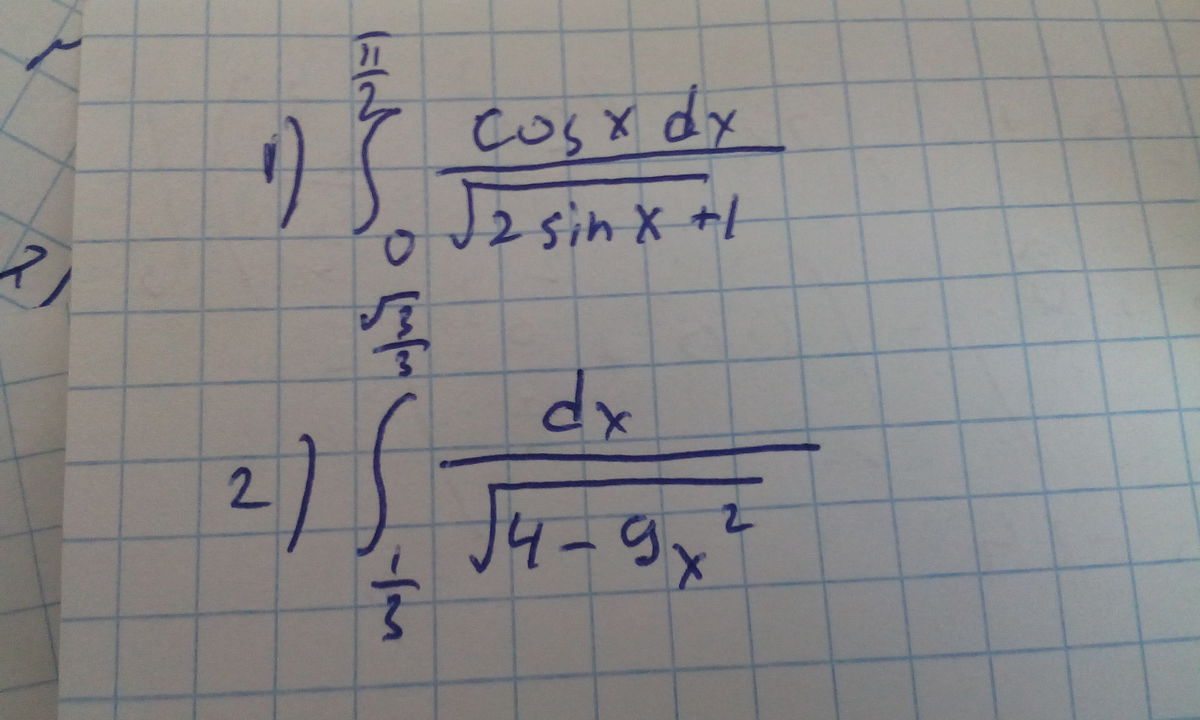 1) ∫_0^{π/2} cos x dx / √(2 sin x + 1)
2) ∫_{1/3}^{√3/3} dx / √(4 - 9x²)